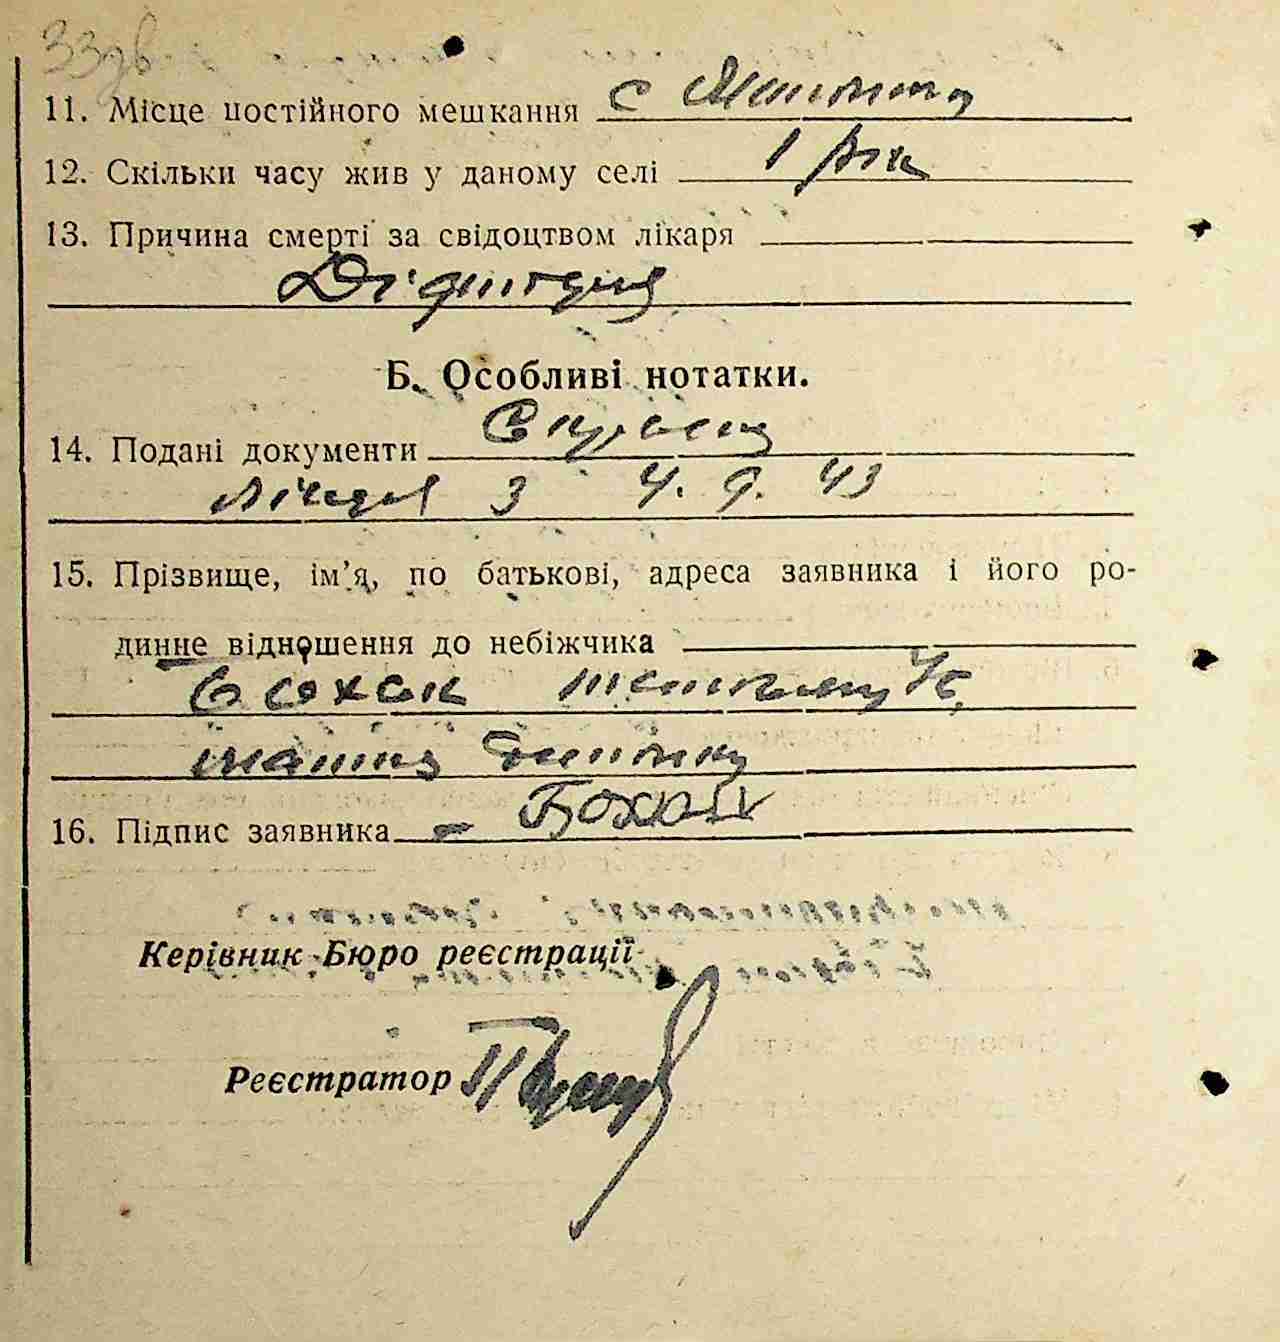 33 дв.
11. Місце постійного мешкання с
12. Скільки часу жив у даному селі 1 рік
13. Причина смерті за свідоцтвом лікаря
Діфтерія
Б. Особливі нотатки.
14. Подані документи Справка
лікаря з 4. 9. 43
15. Прізвище, ім’я, по батькові, адреса заявника і його ро-
динне відношення до небіжчика
Бохак
мати
16. Підпис заявника – Бохак
Керівник Бюро реєстрації
Реєстратор